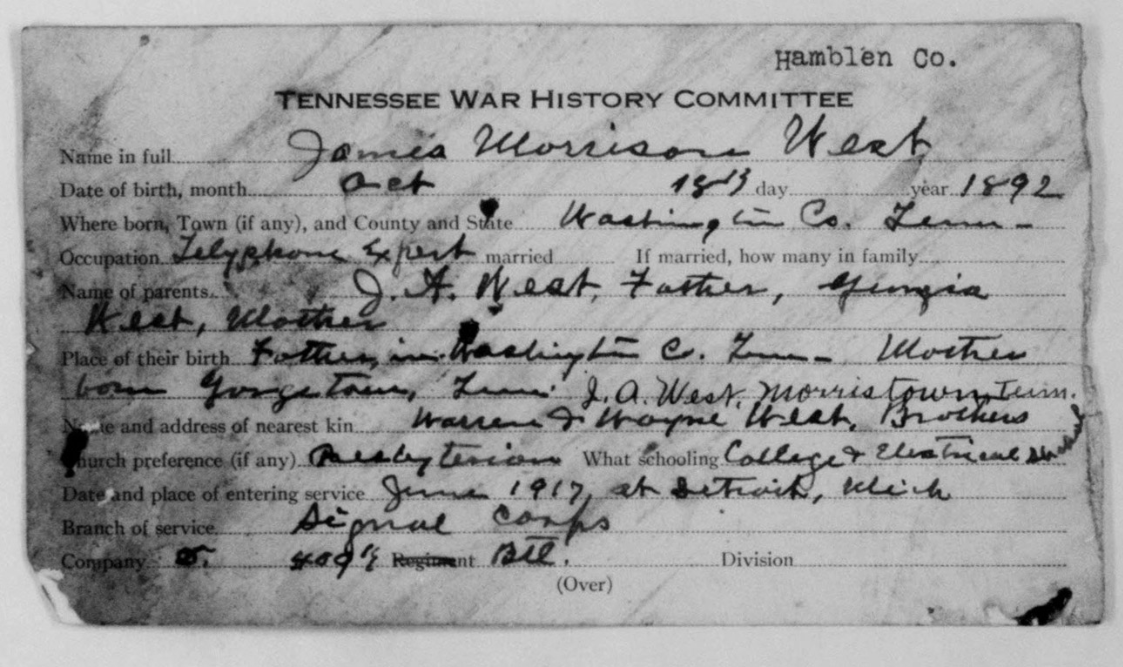 Hamblen Co.
TENNESSEE WAR HISTORY COMMITTEE
Name in full James Morrison West
Date of birth, month Oct 18th day year 1892
Where born, Town (if any), and County and State Washington Co. Tenn -
Occupation Telephone Expert married If married, how many in family
Name of parents. J. A. West, Father, Georgia
West, Mother
Place of their birth Father, in Washington Co. Tenn - Mother
born Tenn. J. A. West, Morristown Tenn.
Name and address of nearest kin Warren & Wayne West, Brothers
Church preference (if any) Presbyterian What schooling College & Electrical
Date and place of entering service June 1917, at Detroit, Mich
Branch of service Signal Corps
Company 409th Regiment Btl. Division
(Over)